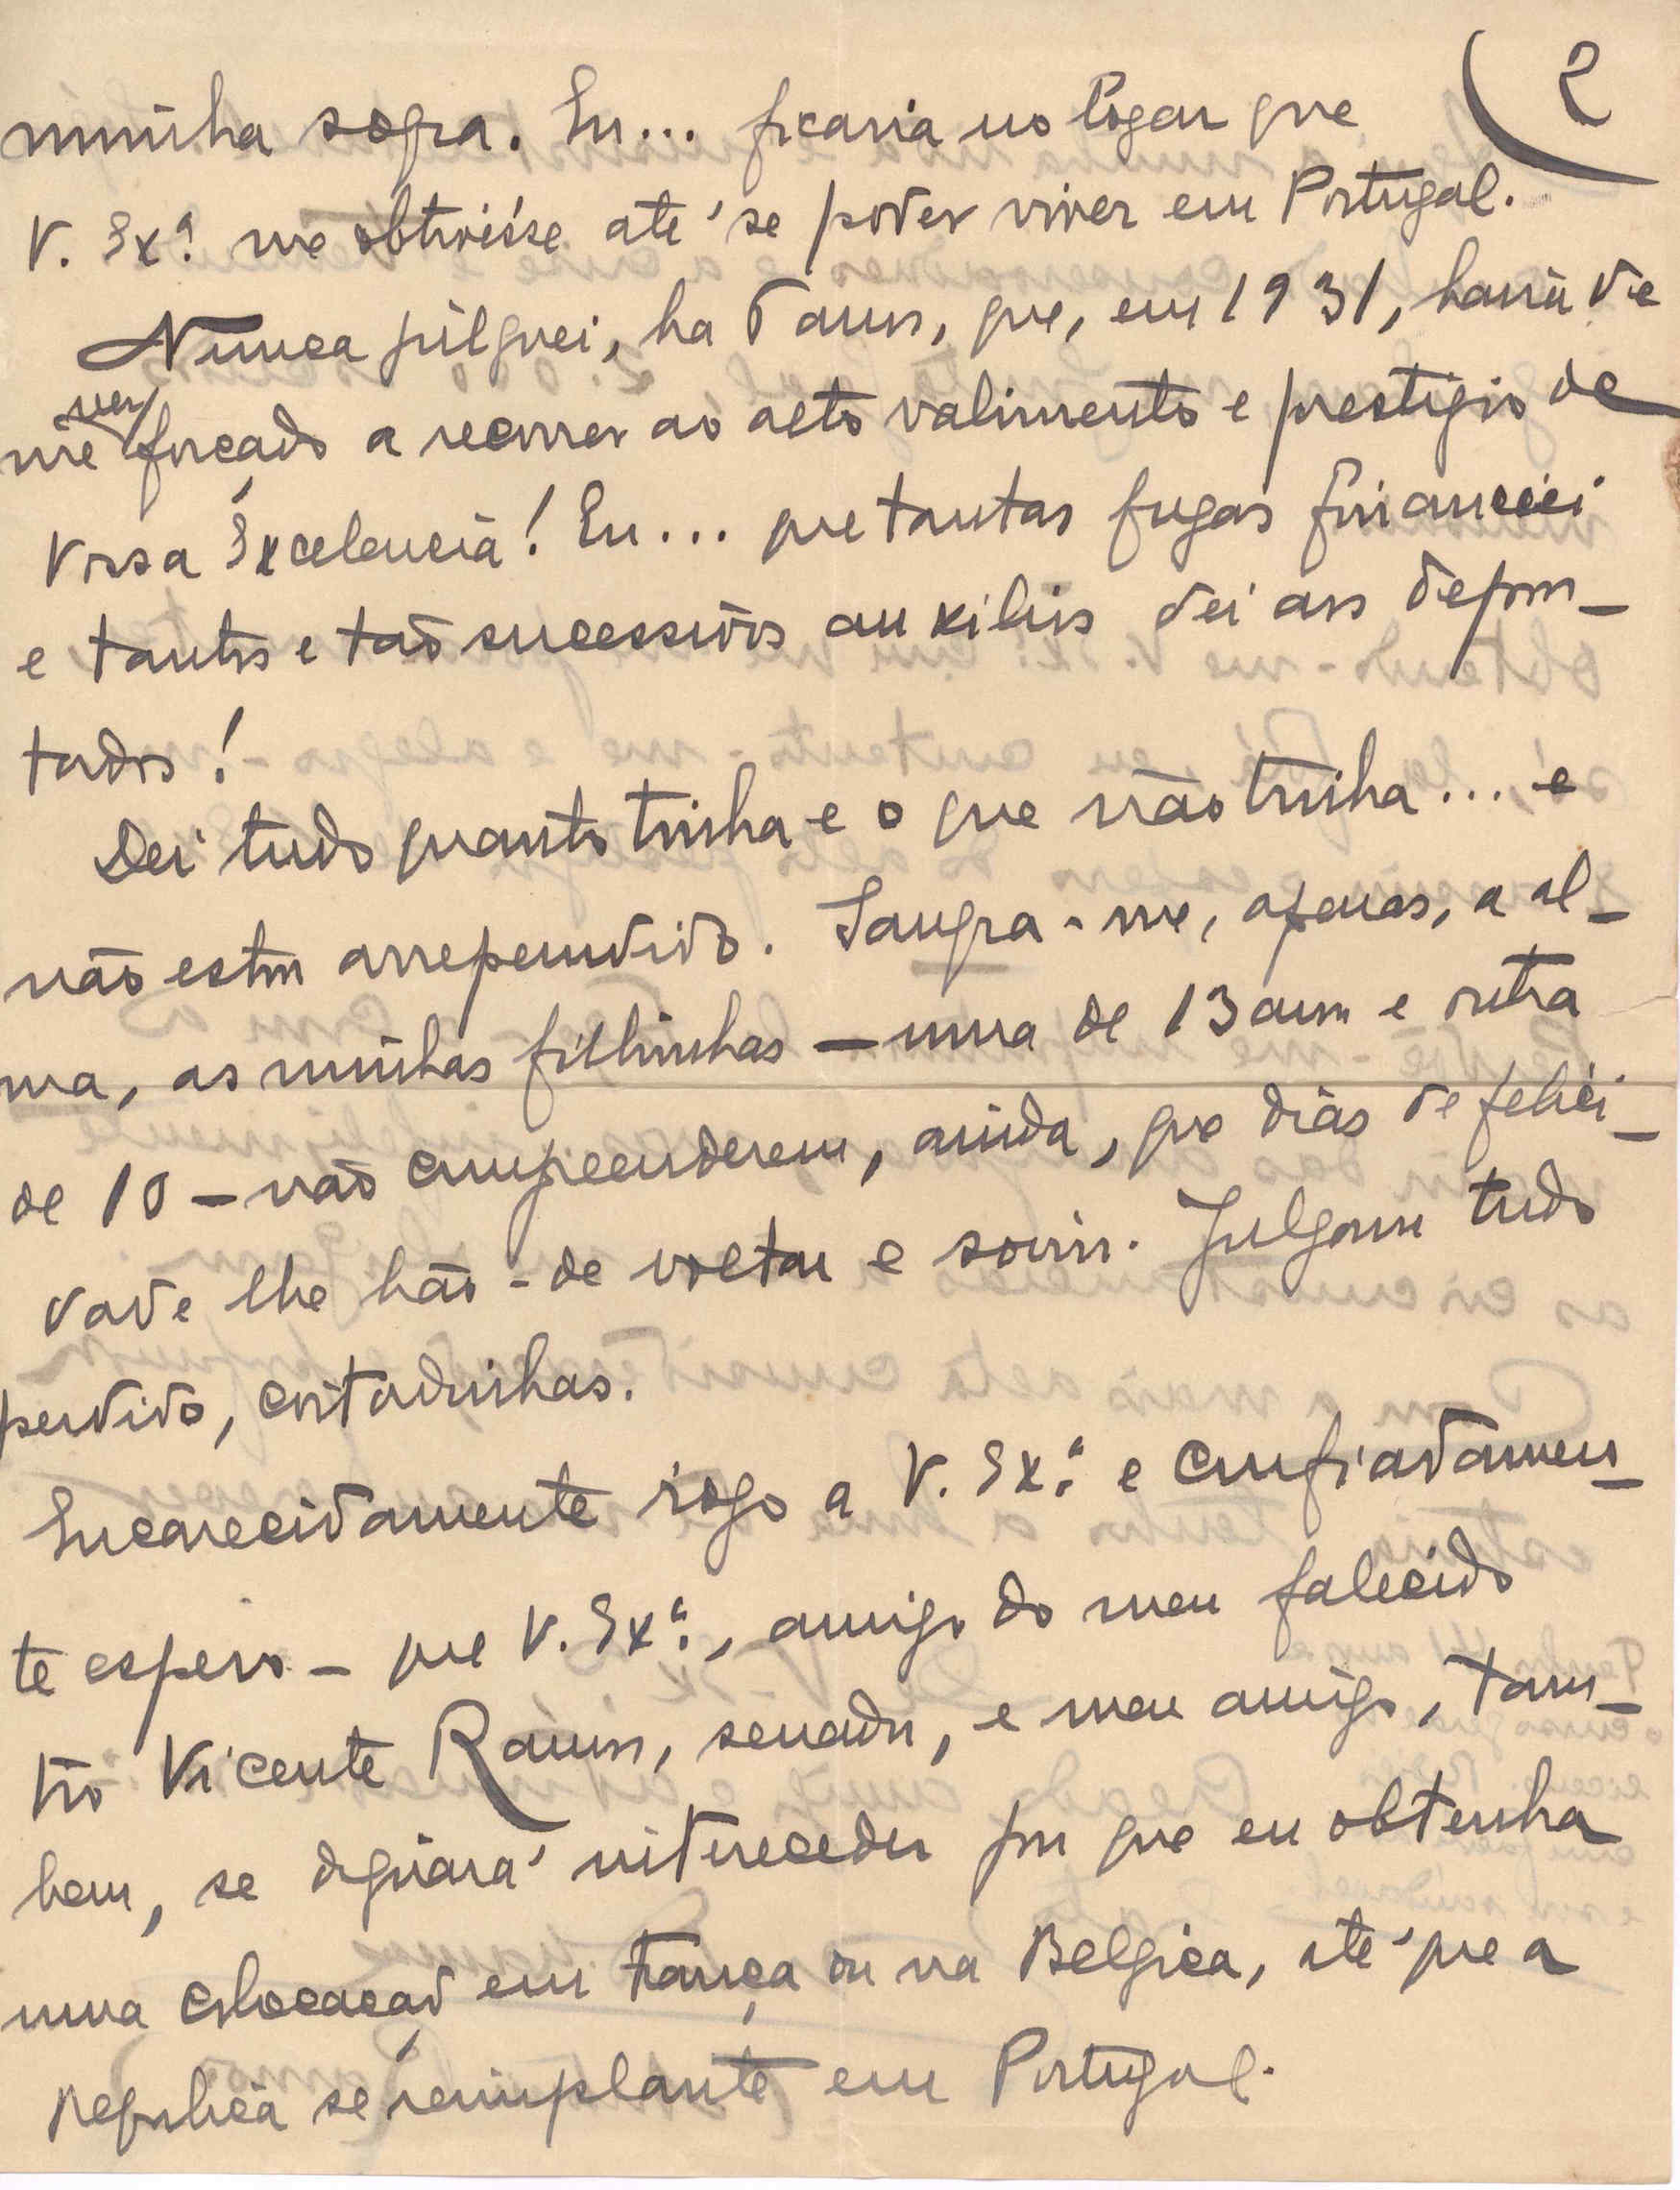 (2
minha sogra. Eu... ficaria no logar que
V. Exª me obtivésse até se poder viver em Portugal.
Nunca julguei, ha 5 anos, que, em 1931, havia de
me ver forçado a recorrer ao alto valimento e prestigio de
Vossa Excelencia! Eu... que tantas fugas financiei
e tantos e tão sucessivos auxilios dei aos depor-
tados!
Dei tudo quanto tinha e o que não tinha... e
não estou arrependido. Sangra-me, apenas, a al-
ma, as minhas filhinhas — uma de 13 anos e outra
de 10 — não compreenderem, ainda, que dias de felici-
dade lhe hão-de voltar e sorrir. Julgam tudo
perdido, coitadinhas.
Encarecidamente rogo a V. Exª e confiadamen-
te espero — que V. Exª, amigo do meu falecido
tio Vicente Ramos, senador, e meu amigo, tam-
bem, se dignará interceder por que eu obtenha
uma colocação em França ou na Belgica, até que a
Republica se reimplante em Portugal.